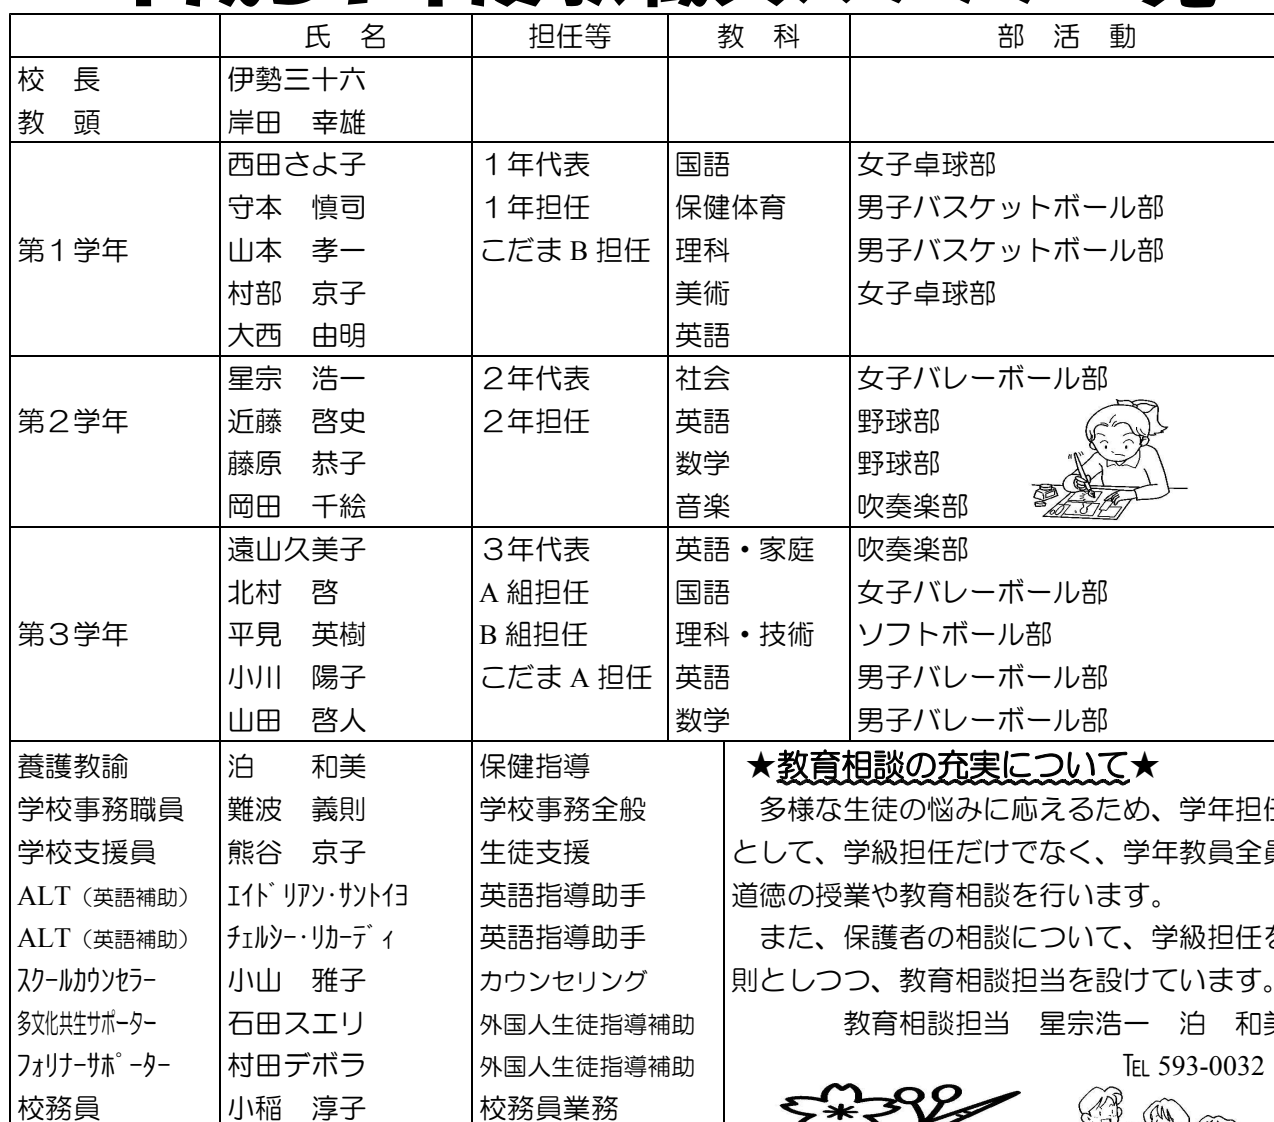 氏　名　担任等　教　科　部　活　動
校　長　伊勢三十六
教　頭　岸田　幸雄
西田さよ子　１年代表　国語　女子卓球部
守本　慎司　１年担任　保健体育　男子バスケットボール部
第１学年　山本　孝一　こだま B 担任　理科　男子バスケットボール部
村部　京子　美術　女子卓球部
大西　由明　英語
星宗　浩一　２年代表　社会　女子バレーボール部
第２学年　近藤　啓史　２年担任　英語　野球部
藤原　恭子　数学　野球部
岡田　千絵　音楽　吹奏楽部
遠山久美子　３年代表　英語・家庭　吹奏楽部
北村　啓　A 組担任　国語　女子バレーボール部
第３学年　平見　英樹　B 組担任　理科・技術　ソフトボール部
小川　陽子　こだま A 担任　英語　男子バレーボール部
山田　啓人　数学　男子バレーボール部
養護教諭　泊　　和美　保健指導
学校事務職員　難波　義則　学校事務全般
学校支援員　熊谷　京子　生徒支援
ALT（英語補助）　ｴｲﾄﾞﾘｱﾝ･ｻﾝﾄｲﾖ　英語指導助手
ALT（英語補助）　ﾁｪﾙｼｰ･ﾘｶｰﾃﾞｨ　英語指導助手
ｽｸｰﾙｶｳﾝｾﾗｰ　小山　雅子　カウンセリング
多文化共生ｻﾎﾟｰﾀｰ　石田スエリ　外国人生徒指導補助
ﾌｫﾘﾅｰｻﾎﾟｰﾀｰ　村田デボラ　外国人生徒指導補助
校務員　小稲　淳子　校務員業務
★教育相談の充実について★
多様な生徒の悩みに応えるため、学年担任
として、学級担任だけでなく、学年教員全員
道徳の授業や教育相談を行います。
また、保護者の相談について、学級担任を
則としつつ、教育相談担当を設けています。
教育相談担当　星宗浩一　泊　和美
℡ 593-0032